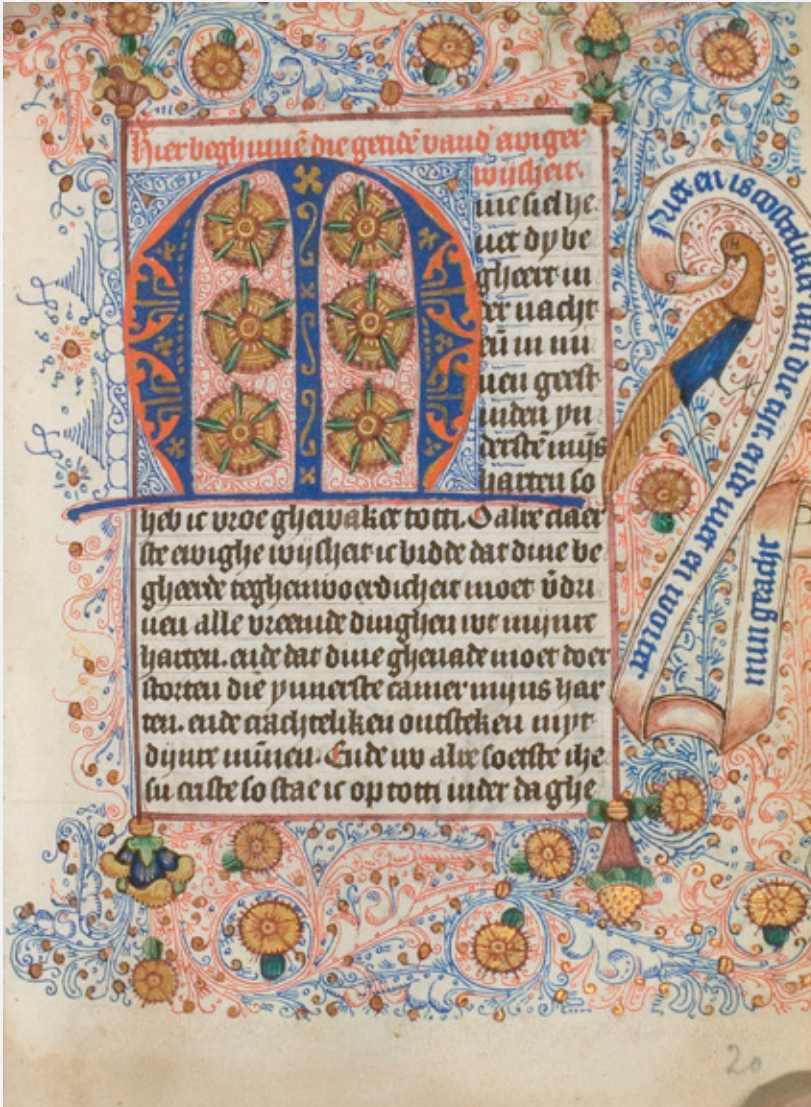 Hier beghinnē die getidē vand' ewiger
wijsheit.
Mine siel he
uet dy be
gheert in
der nacht
eñ in mi
nen geest
inden yn
derstē mijs
harten so
heb ic vroe ghewaket totti. O alre claer
ste ewighe wijsheit ic bidde dat dine be
gheerde teghenwoerdicheit moet v̄dri
uen alle vreemde dinghen wt mijnre
harten. ende dat dine ghenade moet doer
storten die ynnerste camer mijns har
ten. ende crachteliken ontsteken myt
dijnre mīnen. Ende nv alre soetste ihe
su criste so stae ic op totti inder daghe
Niet en is costeliker dan die tijt ende niet en wortter
min geacht
20